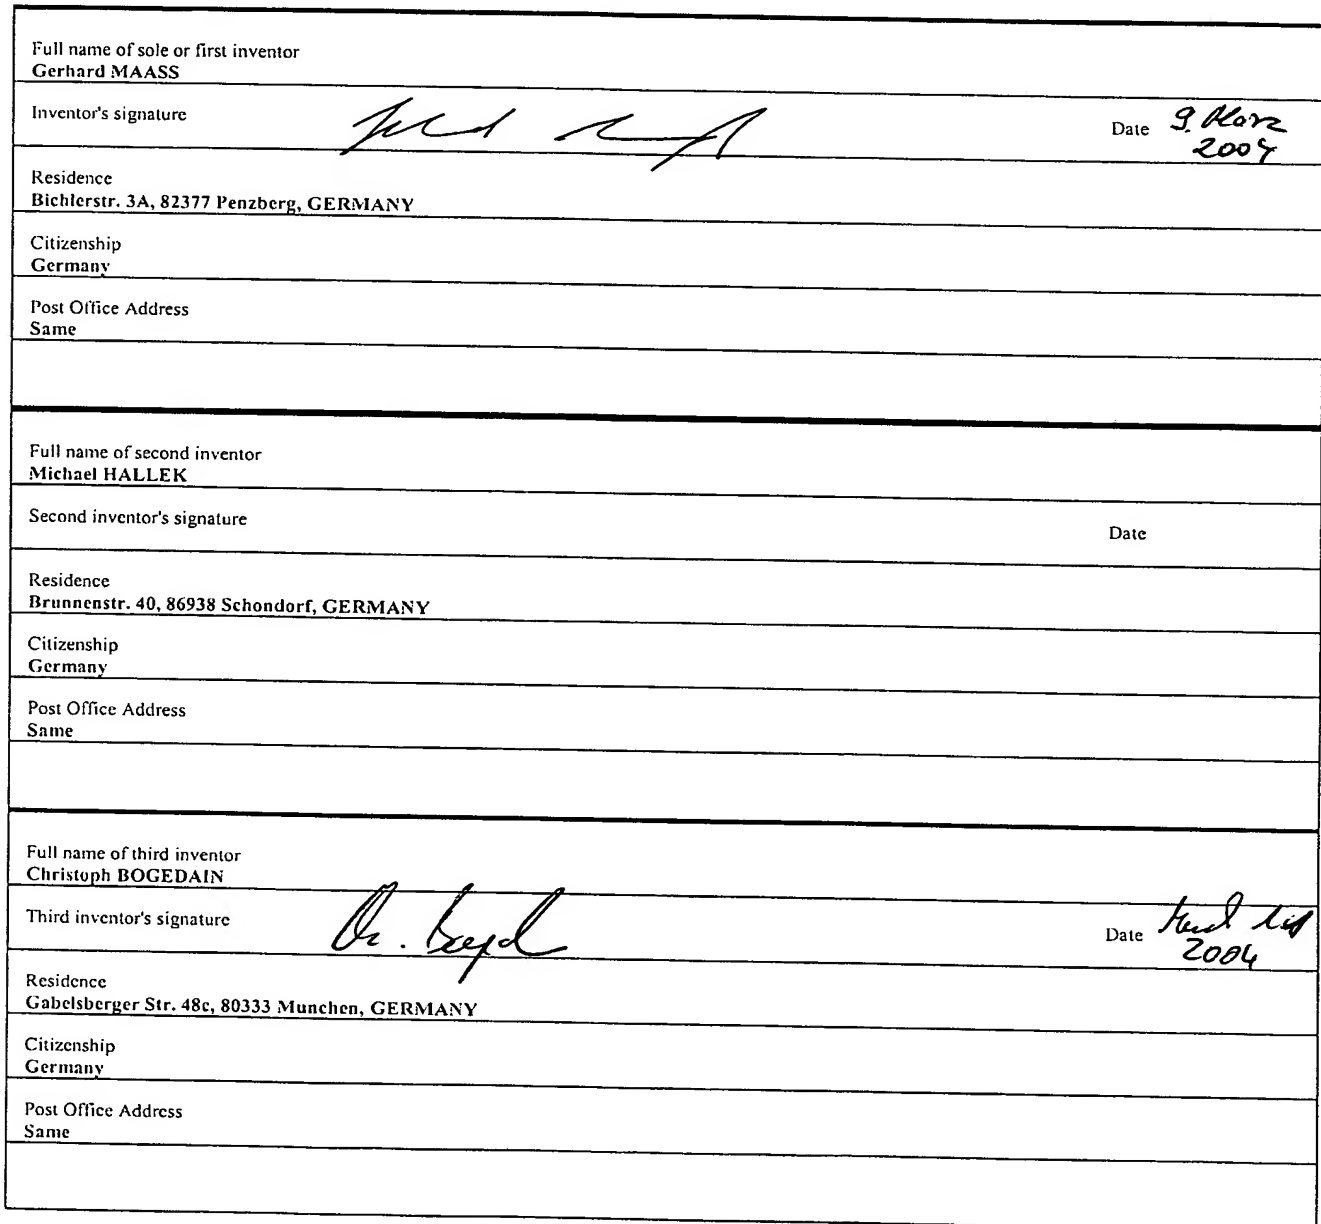 Full name of sole or first inventor
Gerhard MAASS
Inventor's signature
Date 9. März
2004
Residence
Bichlerstr. 3A, 82377 Penzberg, GERMANY
Citizenship
Germany
Post Office Address
Same
Full name of second inventor
Michael HALLEK
Second inventor's signature
Date
Residence
Brunnenstr. 40, 86938 Schondorf, GERMANY
Citizenship
Germany
Post Office Address
Same
Full name of third inventor
Christoph BOGEDAIN
Third inventor's signature
Date
2004
Residence
Gabelsberger Str. 48c, 80333 Munchen, GERMANY
Citizenship
Germany
Post Office Address
Same